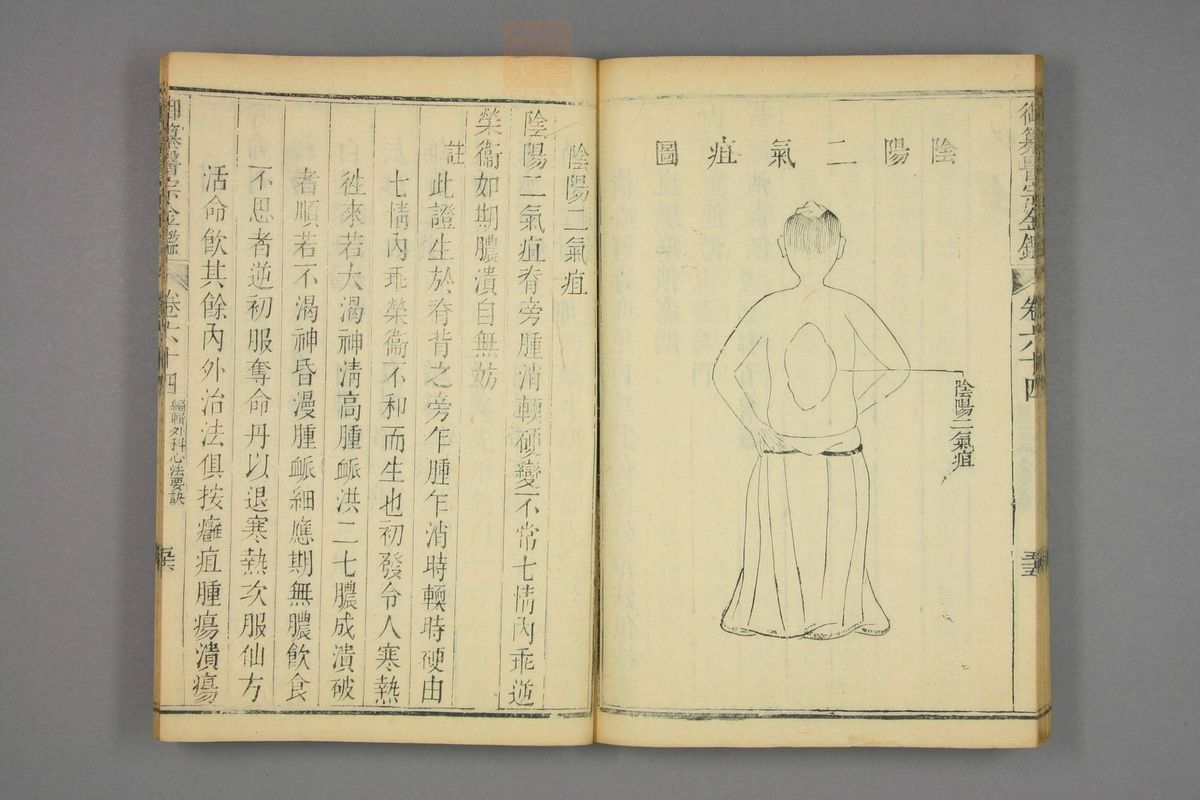 御纂醫宗金鑑
卷六十四
五五
陰陽二氣疽圖
陰陽二氣疽
陰陽二氣疽
陰陽二氣疽脊旁腫消輭硬變不常七情內乖逆
榮衞如期膿潰自無妨
註
此證生於脊背之旁乍腫乍消時輭時硬由
七情內乖榮衞不和而生也初發令人寒熱
徃來若大渴神清高腫脈洪二七膿成潰破
者順若不渴神昏漫腫脈細應期無膿飮食
不思者逆初服奪命丹以退寒熱次服仙方
活命飮其餘內外治法俱按癰疽腫瘍潰瘍
御纂醫宗金鑑
卷六十四
編輯外科心法要訣
五六